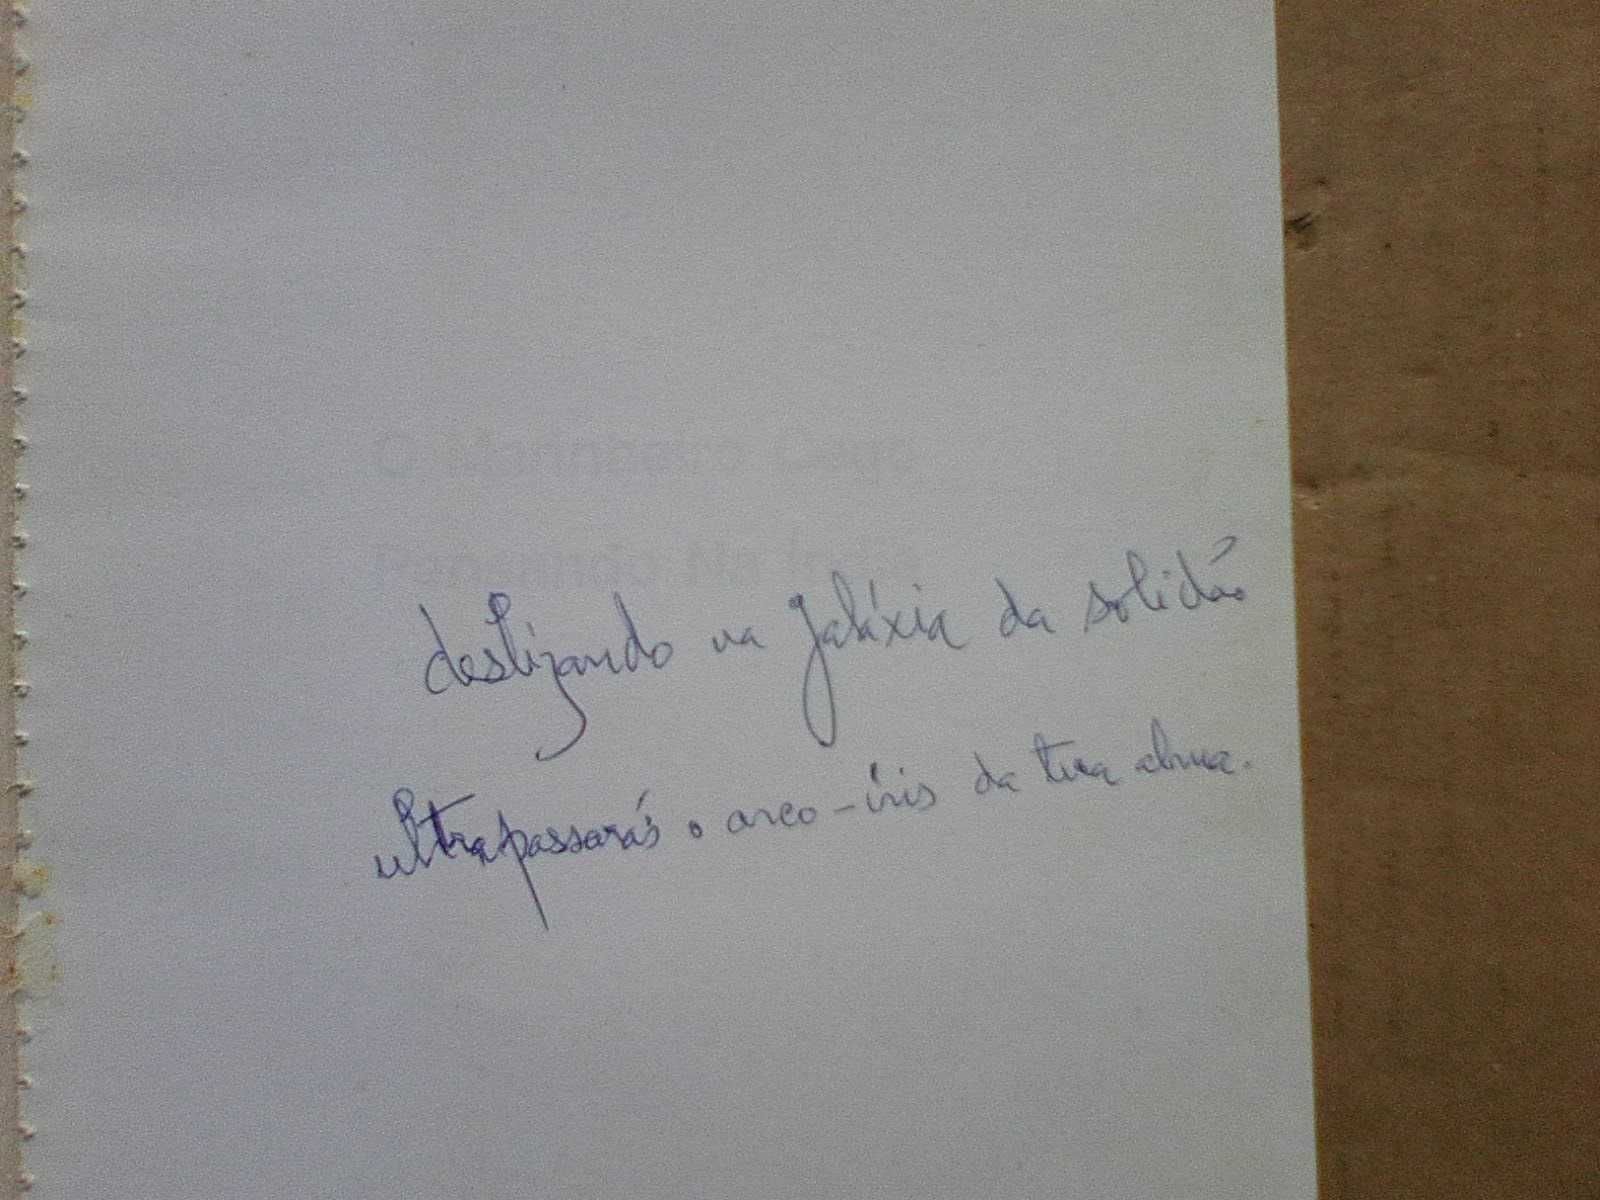 O Marinheiro Cego
deslizando na galáxia da solidão
ultrapassarás o arco-íris da tua alma.